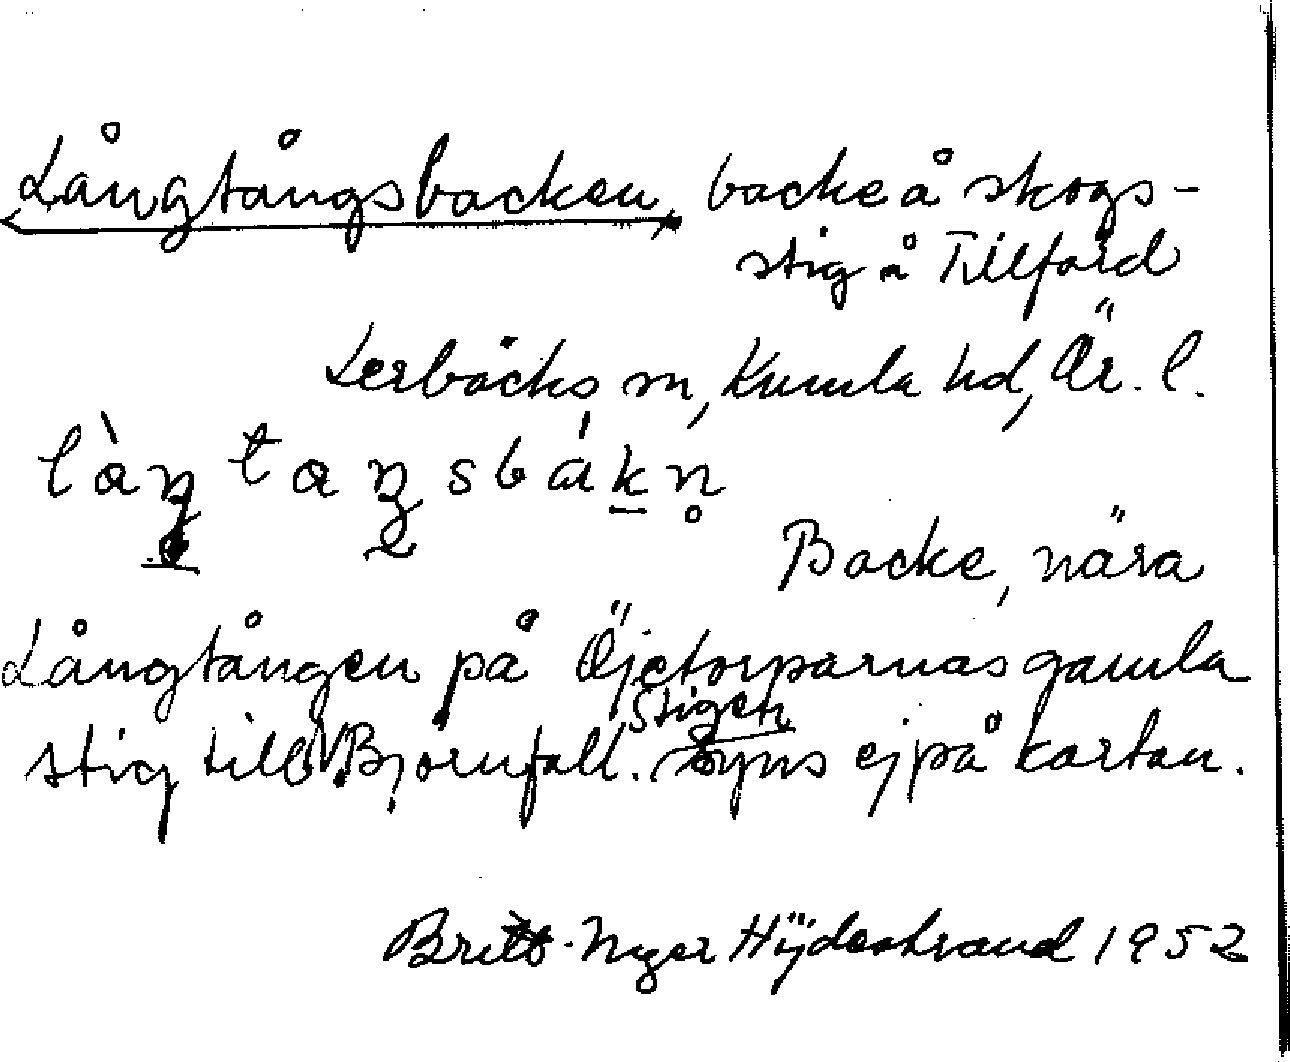 Långtångsbacken, backe å skogs-
stig å Tillförd
Lerbäcks sn, Kumla hd, Är. l.
Backe, nära
Långtången på Öjetorparnas gamla
stig till V. Björnfall. Stigen
syns ej på kartan.
Britt-Inger 1952